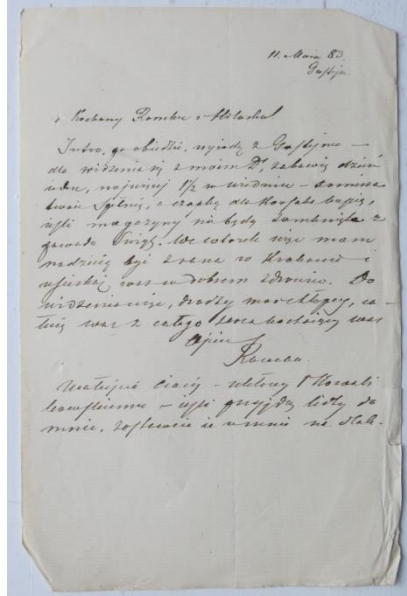 11. Maja 83.
Gastyn
Kochany Romku i Michasiu!
Jutro, po obiedzie, wyjadę z Gastynu —
dla widzenia się z moim Dr, zabawię dzień
jeden, najwyżej 1½ w Wiedniu —
twoje spełnię, a czapkę dla Józefa kupię,
jeśli magazyny nie będą zamknięte z
powodu Świąt. We wtorek więc mam
nadzieję być z rana w Krakowie i
uściskać was w dobrem zdrowiu. Do
widzenia więc, drodzy moi chłopcy, ca-
łuję was z całego serca kochający was
Ojciec
Uściskajcie Ciocię
— jeśli przyjdą listy do
mnie, zostawcie je u mnie na stole.